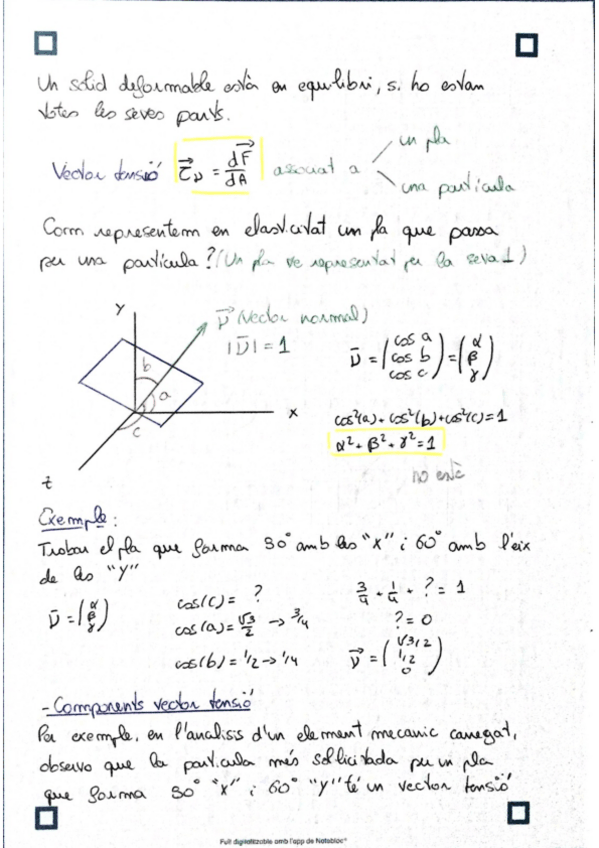 Un sòlid deformable està en equilibri, si ho estan
totes les seves parts.
un pla
Vector tensió τ⃗ν = dF⃗/dA associat a
una partícula
Com representem en elasticitat un pla que passa
per una partícula? (Un pla ve representat per la seva ⊥)
y
ν⃗ (vector normal)
|ν̄| = 1
b
a
c
x
z
ν̄ = (cos a cos b cos c) = (α β γ)
cos²(a) + cos²(b) + cos²(c) = 1
α² + β² + γ² = 1
no està
Exemple:
Trobar el pla que forma 30° amb les "x" i 60° amb l'eix
de les "y"
ν̄ = (α β γ)
cos(c) = ?
cos(a) = √3/2 → 3/4
cos(b) = 1/2 → 1/4
3/4 + 1/4 + ? = 1
? = 0
ν⃗ = (√3/2 1/2 0)
- Components vector tensió
Per exemple, en l'anàlisis d'un element mecànic carregat,
observo que la partícula més sol·licitada per un pla
que forma 30° "x" i 60° "y" té un vector tensió
Full digitalitzable amb l'app de Notebloc®